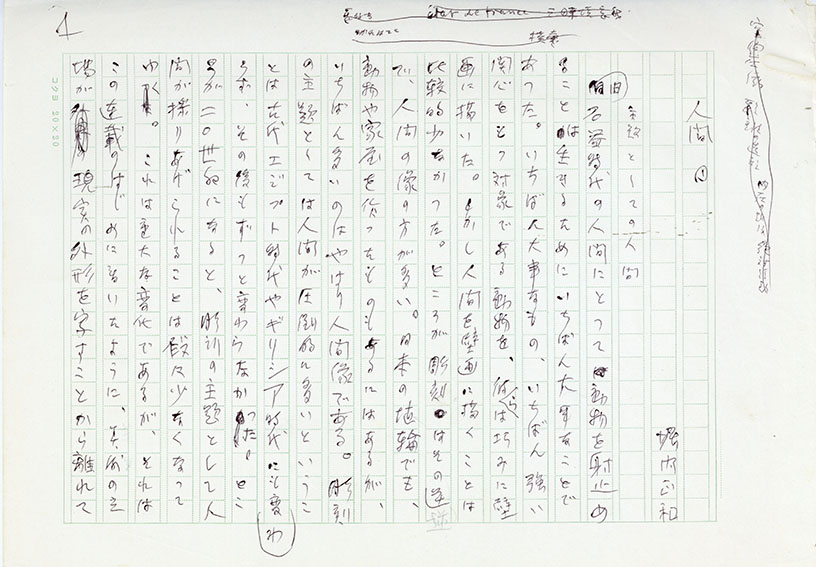 人間 ①
堀内正和
主題としての人間
旧石器時代の人間にとって動物を射止め
ることは生きるためにいちばん大事なことで
あった。いちばん大事なもの、いちばん強い
関心をもつ対象である動物を、彼らは巧みに壁
画に描いた。しかし人間を壁画に描くことは
比較的少なかった。ところが彫刻はその逆
で、人間の像の方が多い。日本の埴輪でも、
動物や家屋を作ったものもあるにはあるが、
いちばん多いのはやはり人間像である。彫刻
の主題としては人間が圧倒的に多いというこ
とは古代エジプト時代やギリシア時代にも変わ
らず、その後もずっと変わらなかった。とこ
ろが二〇世紀になると、彫刻の主題として人
間が採りあげられることは段々少なくなって
ゆく。これは重大な変化であるが、それは
この連載のはじめに書いたように、美術の立
場が現実の外形を写すことから離れて
1
コクヨ 20×20